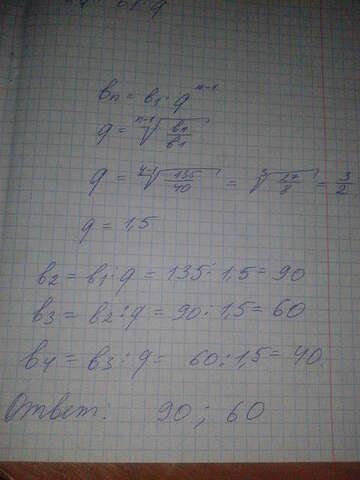 bn = b1 · q^(n-1)
q = ⁿ⁻¹√(bn/b1)
q = ⁴⁻¹√(135/40) = ³√(27/8) = 3/2
q = 1,5
b2 = b1 : q = 135 : 1,5 = 90
b3 = b2 : q = 90 : 1,5 = 60
b4 = b3 : q = 60 : 1,5 = 40.
Ответ: 90 ; 60